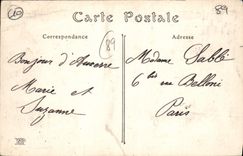 Carte Postale
Correspondance
Adresse
10
89
89
Bonjour d'Auxerre
Marie et
Suzanne
Madame Sablé
6 bis rue Belloni
Paris